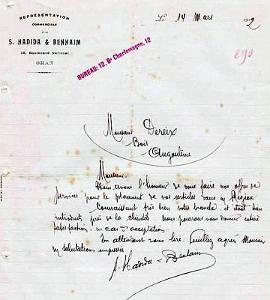 REPRÉSENTATION
COMMERCIALE
S. HADIDA & BENHAIM
Boulevard National
ORAN
BUREAU: 12, Bd Charlemagne, 12
Le 14 Mars
290
Monsieur Dereix
Bois
Angoulême
Monsieur,
avons l'honneur de vous faire nos offres de
services pour le placement de vos articles dans
Connaissant très bien votre et étant bien
introduits près de la clientèle nous pourrons vous donner entière
satisfaction en cas d'acceptation.
En attendant vous lire, Veuillez agréer Monsieur
nos salutations empressées
S. Hadida & Benhaim